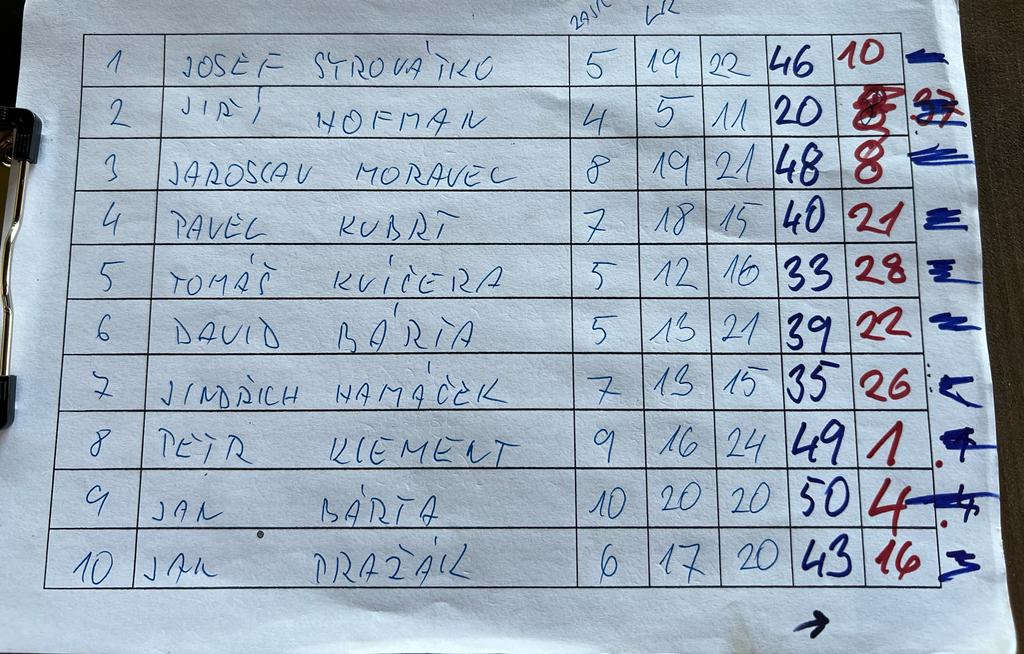 ZÁSK LK
1 JOSEF SYROVÁTKO 5 19 22 46 10
2 JIŘÍ HOFMAN 4 5 11 20 37
3 JAROSLAV MORAVEC 8 19 21 48 8
4 PAVEL KUBRT 7 18 15 40 21
5 TOMÁŠ KVÍČERA 5 12 16 33 28
6 DAVID BÁRTA 5 13 21 39 22
7 JINDŘICH HAMÁČEK 7 13 15 35 26
8 PETR KLEMENT 9 16 24 49 1
9 JAN BÁRTA 10 20 20 50 4
10 JAN PRAŽÁK 6 17 20 43 16